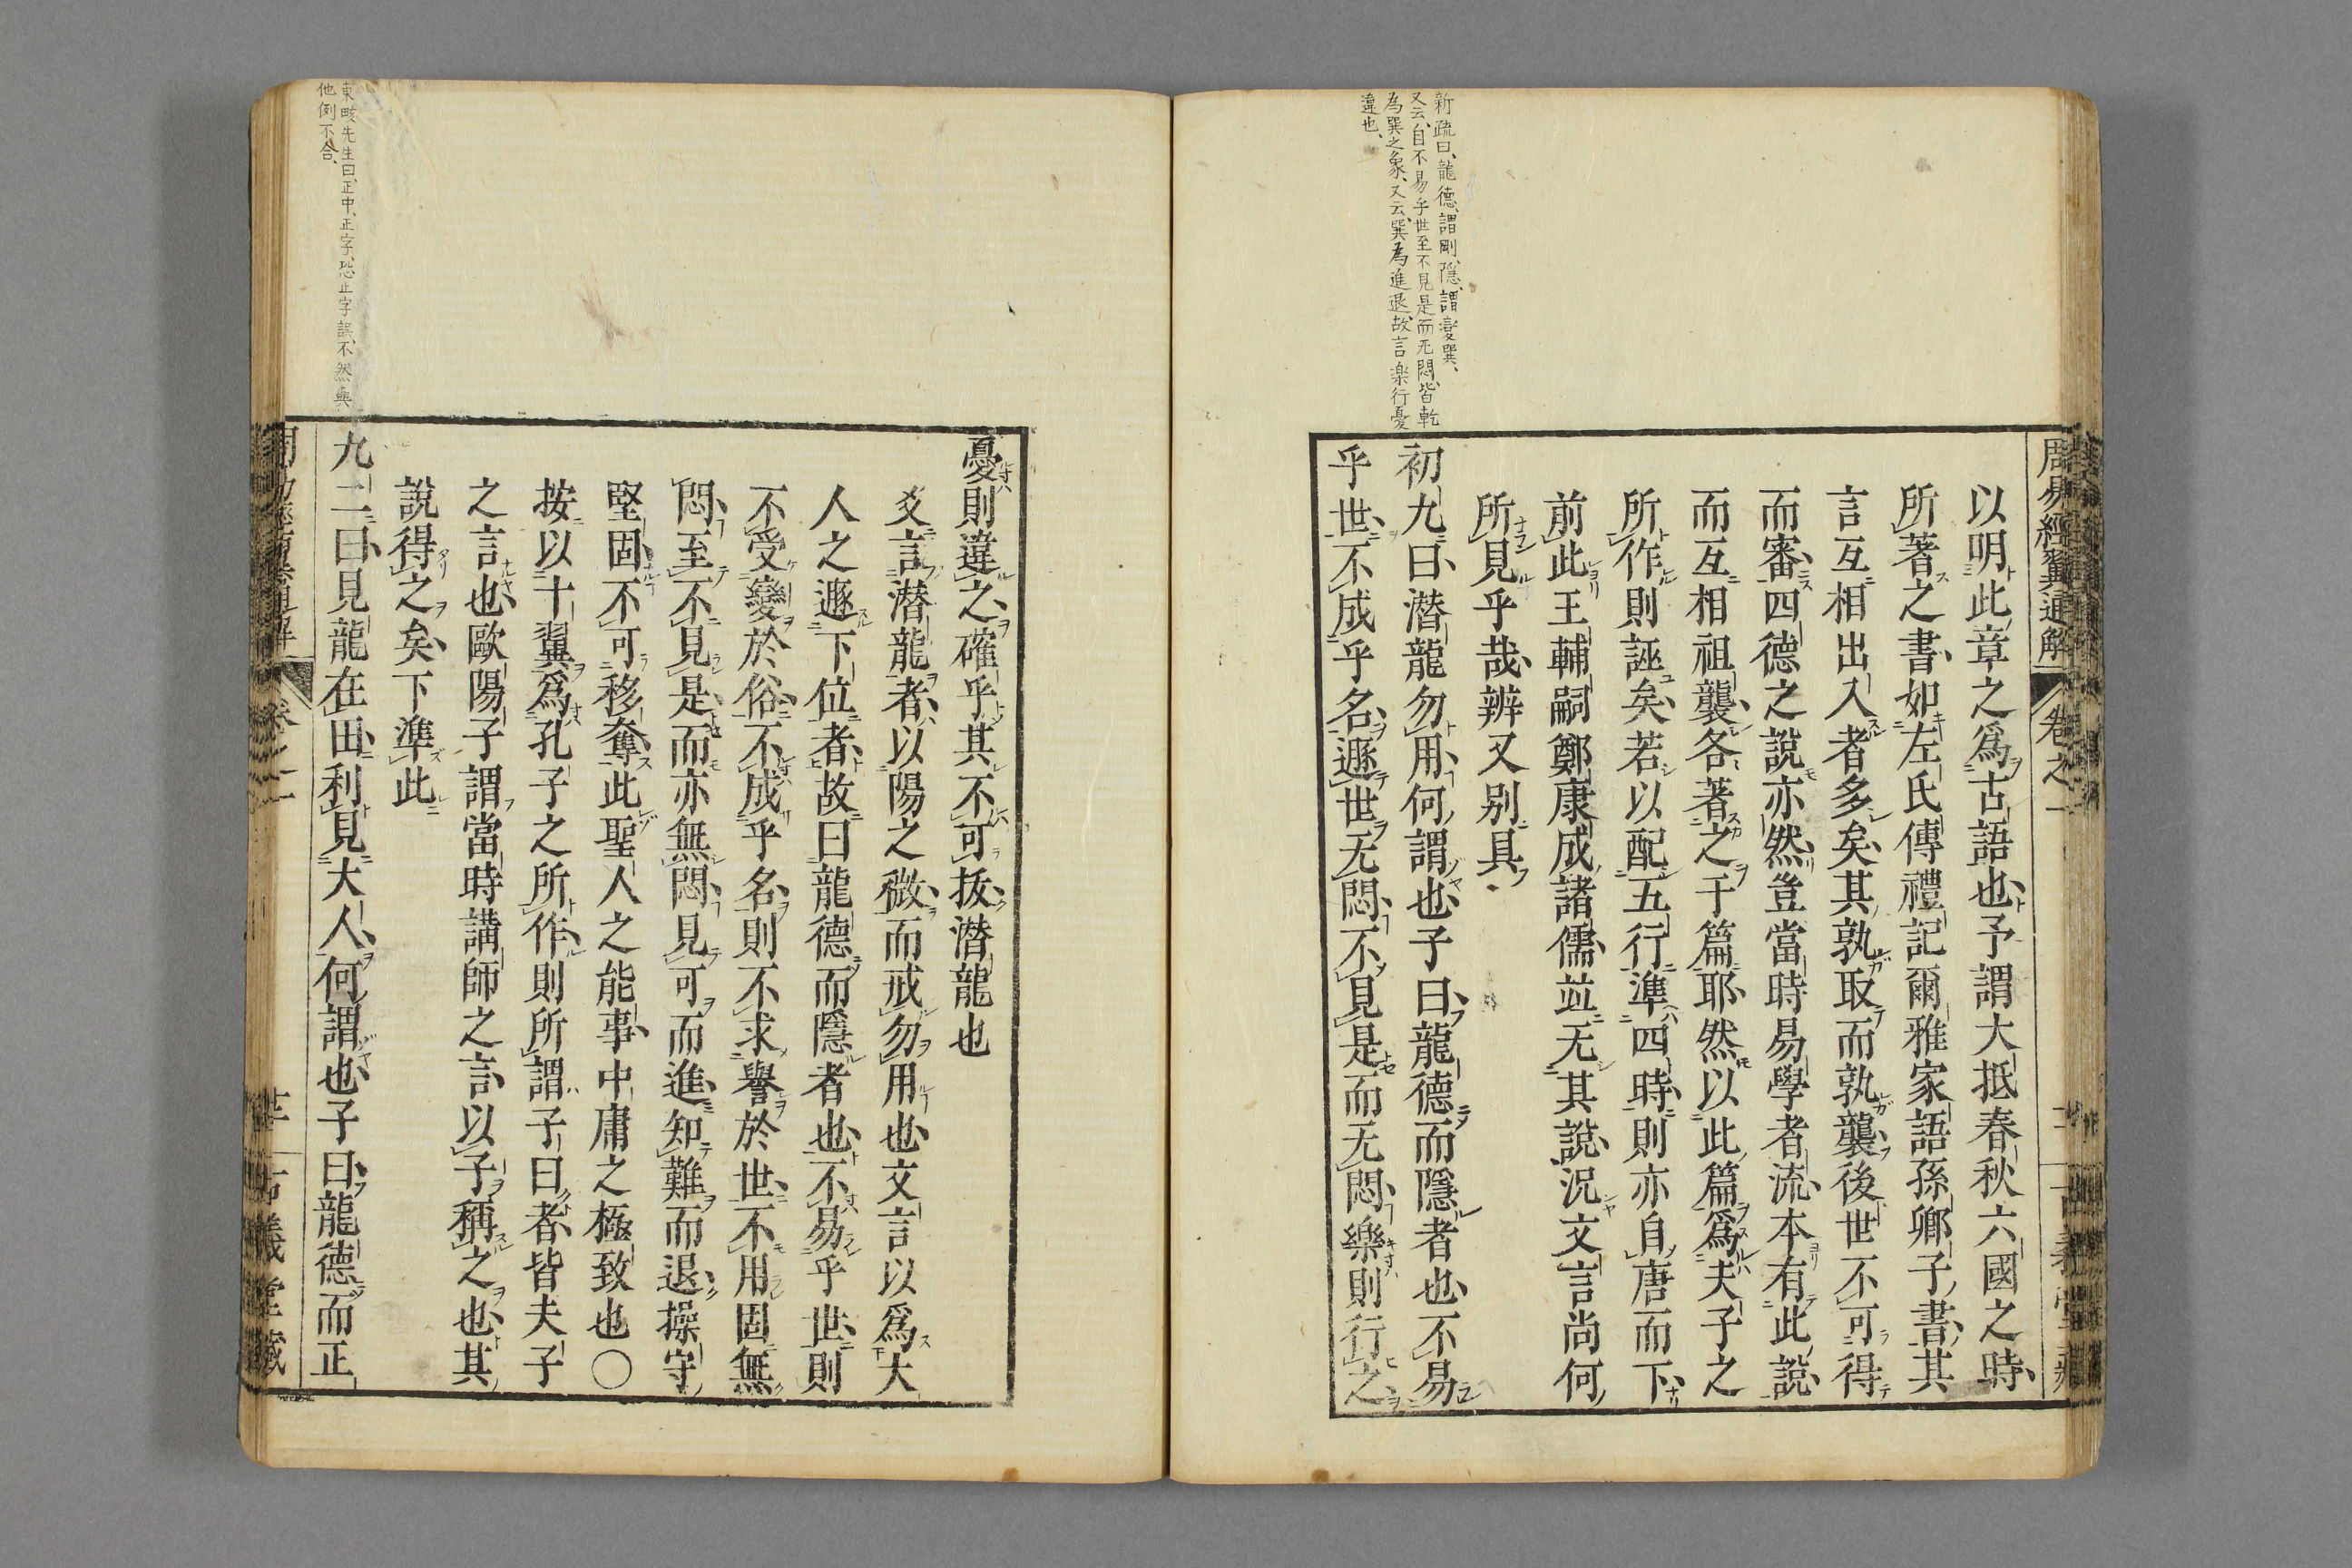 新疏曰、龍德、謂剛、隱、謂變巽、
又云、自不易乎世至不見是而无悶、皆乾
為巽之象、又云、巽為進退、故言楽行憂
違也、
周易經翼通解
卷之一
以明此章之爲古語也予謂大抵春秋六國之時
所著之書如左氏傳禮記爾雅家語孫卿子書其
言互相出入者多矣其孰取而孰襲後世不可得
而審四德之說亦然豈當時易學者流本有此說
而互相祖襲各著之于篇耶然以此篇爲夫子之
所作則誣矣若以配五行準四時則亦自唐而下
前此王輔嗣鄭康成諸儒竝无其說況文言尚何
所見乎哉辨又别具
初九曰潛龍勿用何謂也子曰龍德而隱者也不易
乎世不成乎名遯世无悶不見是而无悶樂則行之
憂則違之確乎其不可拔潛龍也
爻言潛龍者以陽之微而戒勿用也文言以爲大
人之遯下位者故曰龍德而隱者也不易乎世則
不受變於俗不成乎名則不求譽於世不用固無
悶至不見是而亦無悶見可而進知難而退操守
堅固不可移奪此聖人之能事中庸之極致也〇
按以十翼爲孔子之所作則所謂子曰者皆夫子
之言也歐陽子謂當時講師之言以子稱之也其
說得之矣下準此
九二曰見龍在田利見大人何謂也子曰龍德而正
東畡先生曰、正中、正字、恐止字誤、不然與
他例不合、
卷之一
古義堂藏